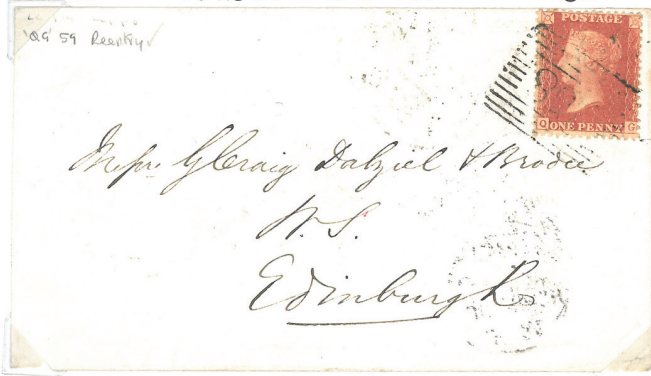 'QG' 59 Reentry
POSTAGE
Q ONE PENNY G
Messrs. G Craig Dalziel & Brodie
W. S.
Edinburgh